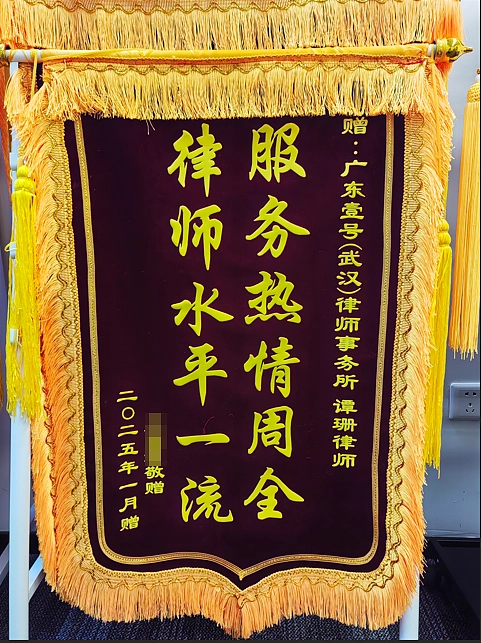 赠：广东壹号(武汉)律师事务所 谭珊律师
服务热情周全
律师水平一流
敬赠
二〇二五年一月赠